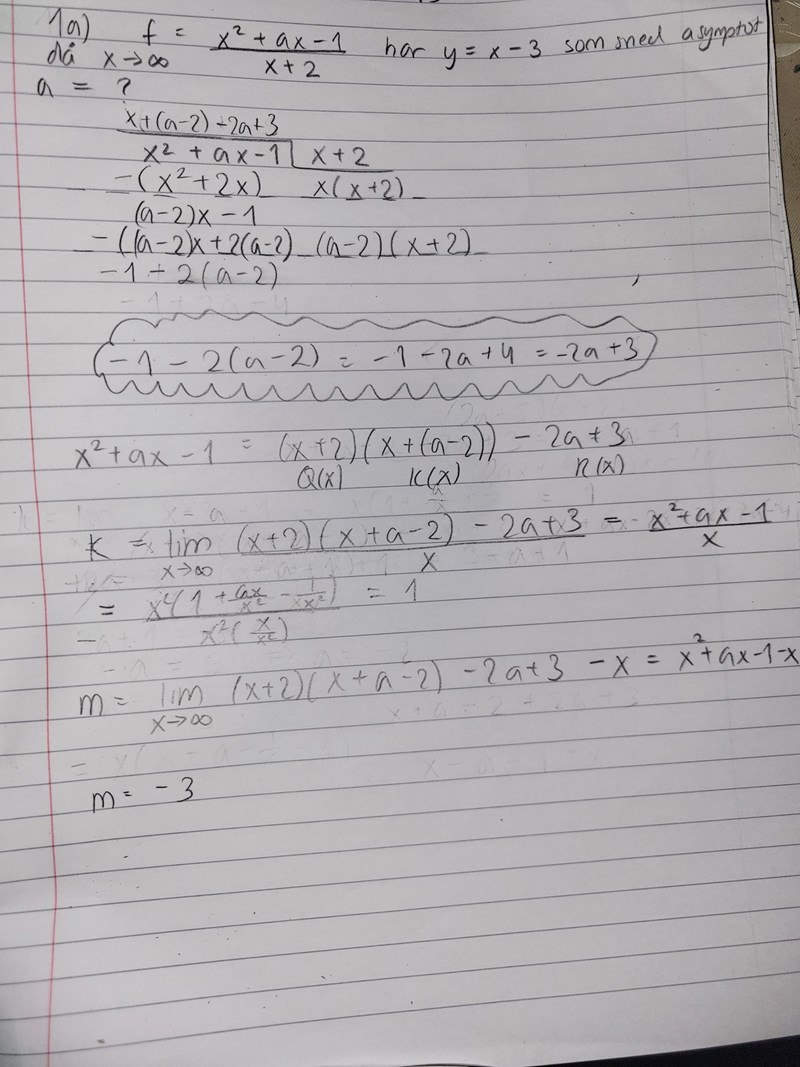 1a) f = (x² + ax - 1)/(x + 2) har y = x - 3 som sned asymptot
då x→∞
a = ?
x+(a-2) -2a+3
x² + ax - 1 | x + 2
-(x² + 2x) x(x+2)
(a-2)x - 1
-((a-2)x + 2(a-2) (a-2)(x+2)
-1 - 2(a-2)
-1 - 2(a-2) = -1 - 2a + 4 = -2a + 3
x² + ax - 1 = (x+2)(x+(a-2)) - 2a + 3
Q(x) K(x) R(x)
K = lim x→∞ ((x+2)(x+a-2) - 2a+3)/x = (x²+ax-1)/x
= x²(1 + ax/x² - 1/x²)/(x²(x/x²)) = 1
m = lim x→∞ (x+2)(x+a-2) - 2a+3 - x = x²+ax-1-x
m = -3